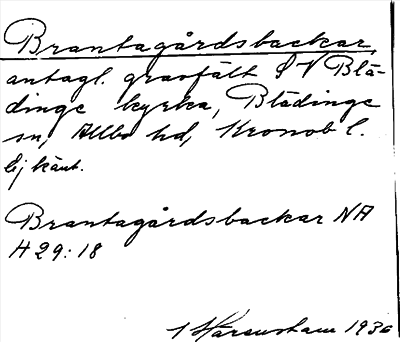 Brantagårdsbackar,
antagl. gravfält S V Blä-
dinge kyrka, Blädinge
sn, Allbo hd, Kronob l.
Ej känt.
Brantagårdsbackar NA
H 29:18
1936